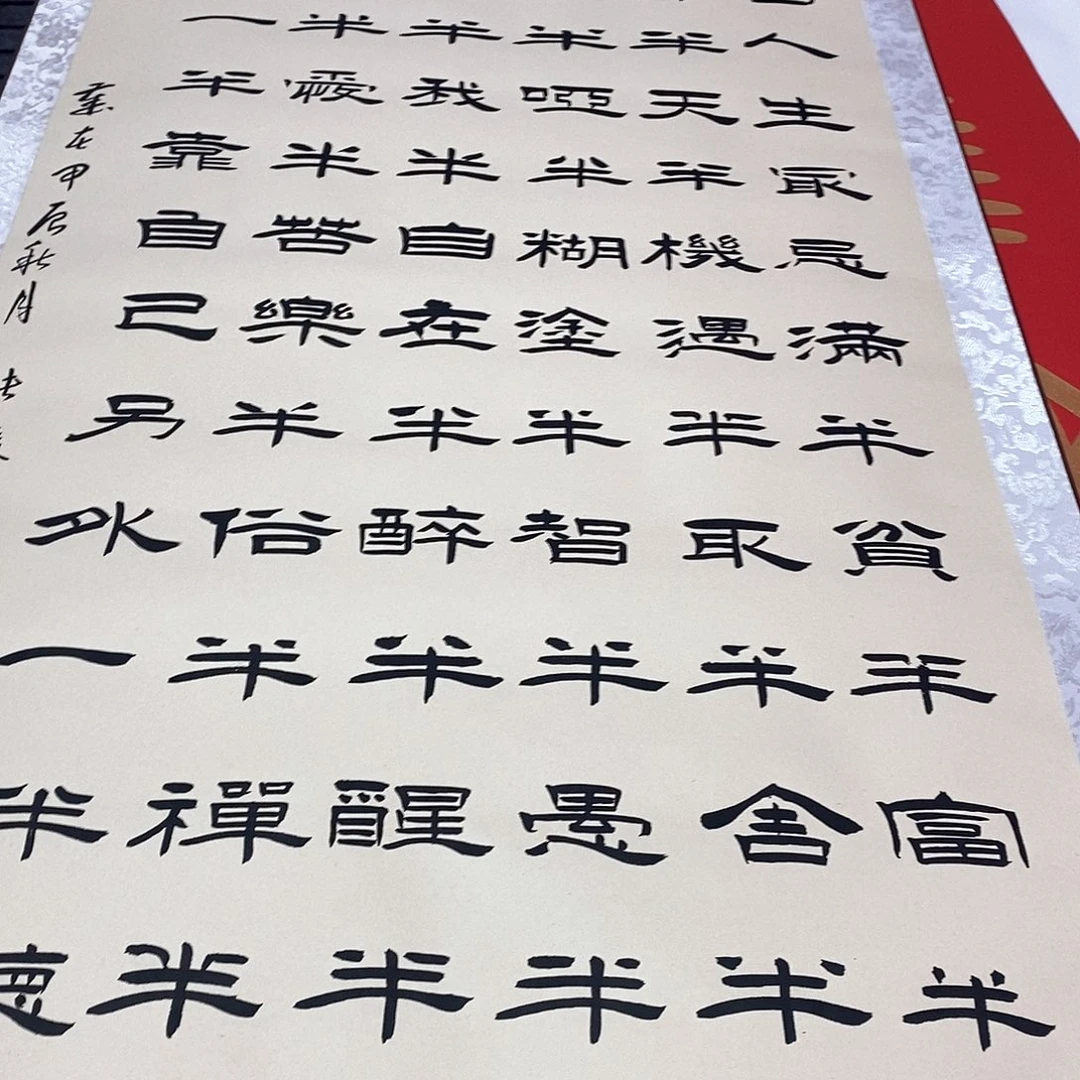 人生最忌滿半貧半富半
半天半機遇半取半舍半
半啞半糊塗半智半愚半
半我半自在半醉半醒半
半愛半苦樂半俗半禪半
一半靠自己另外一半
歲在甲辰秋月